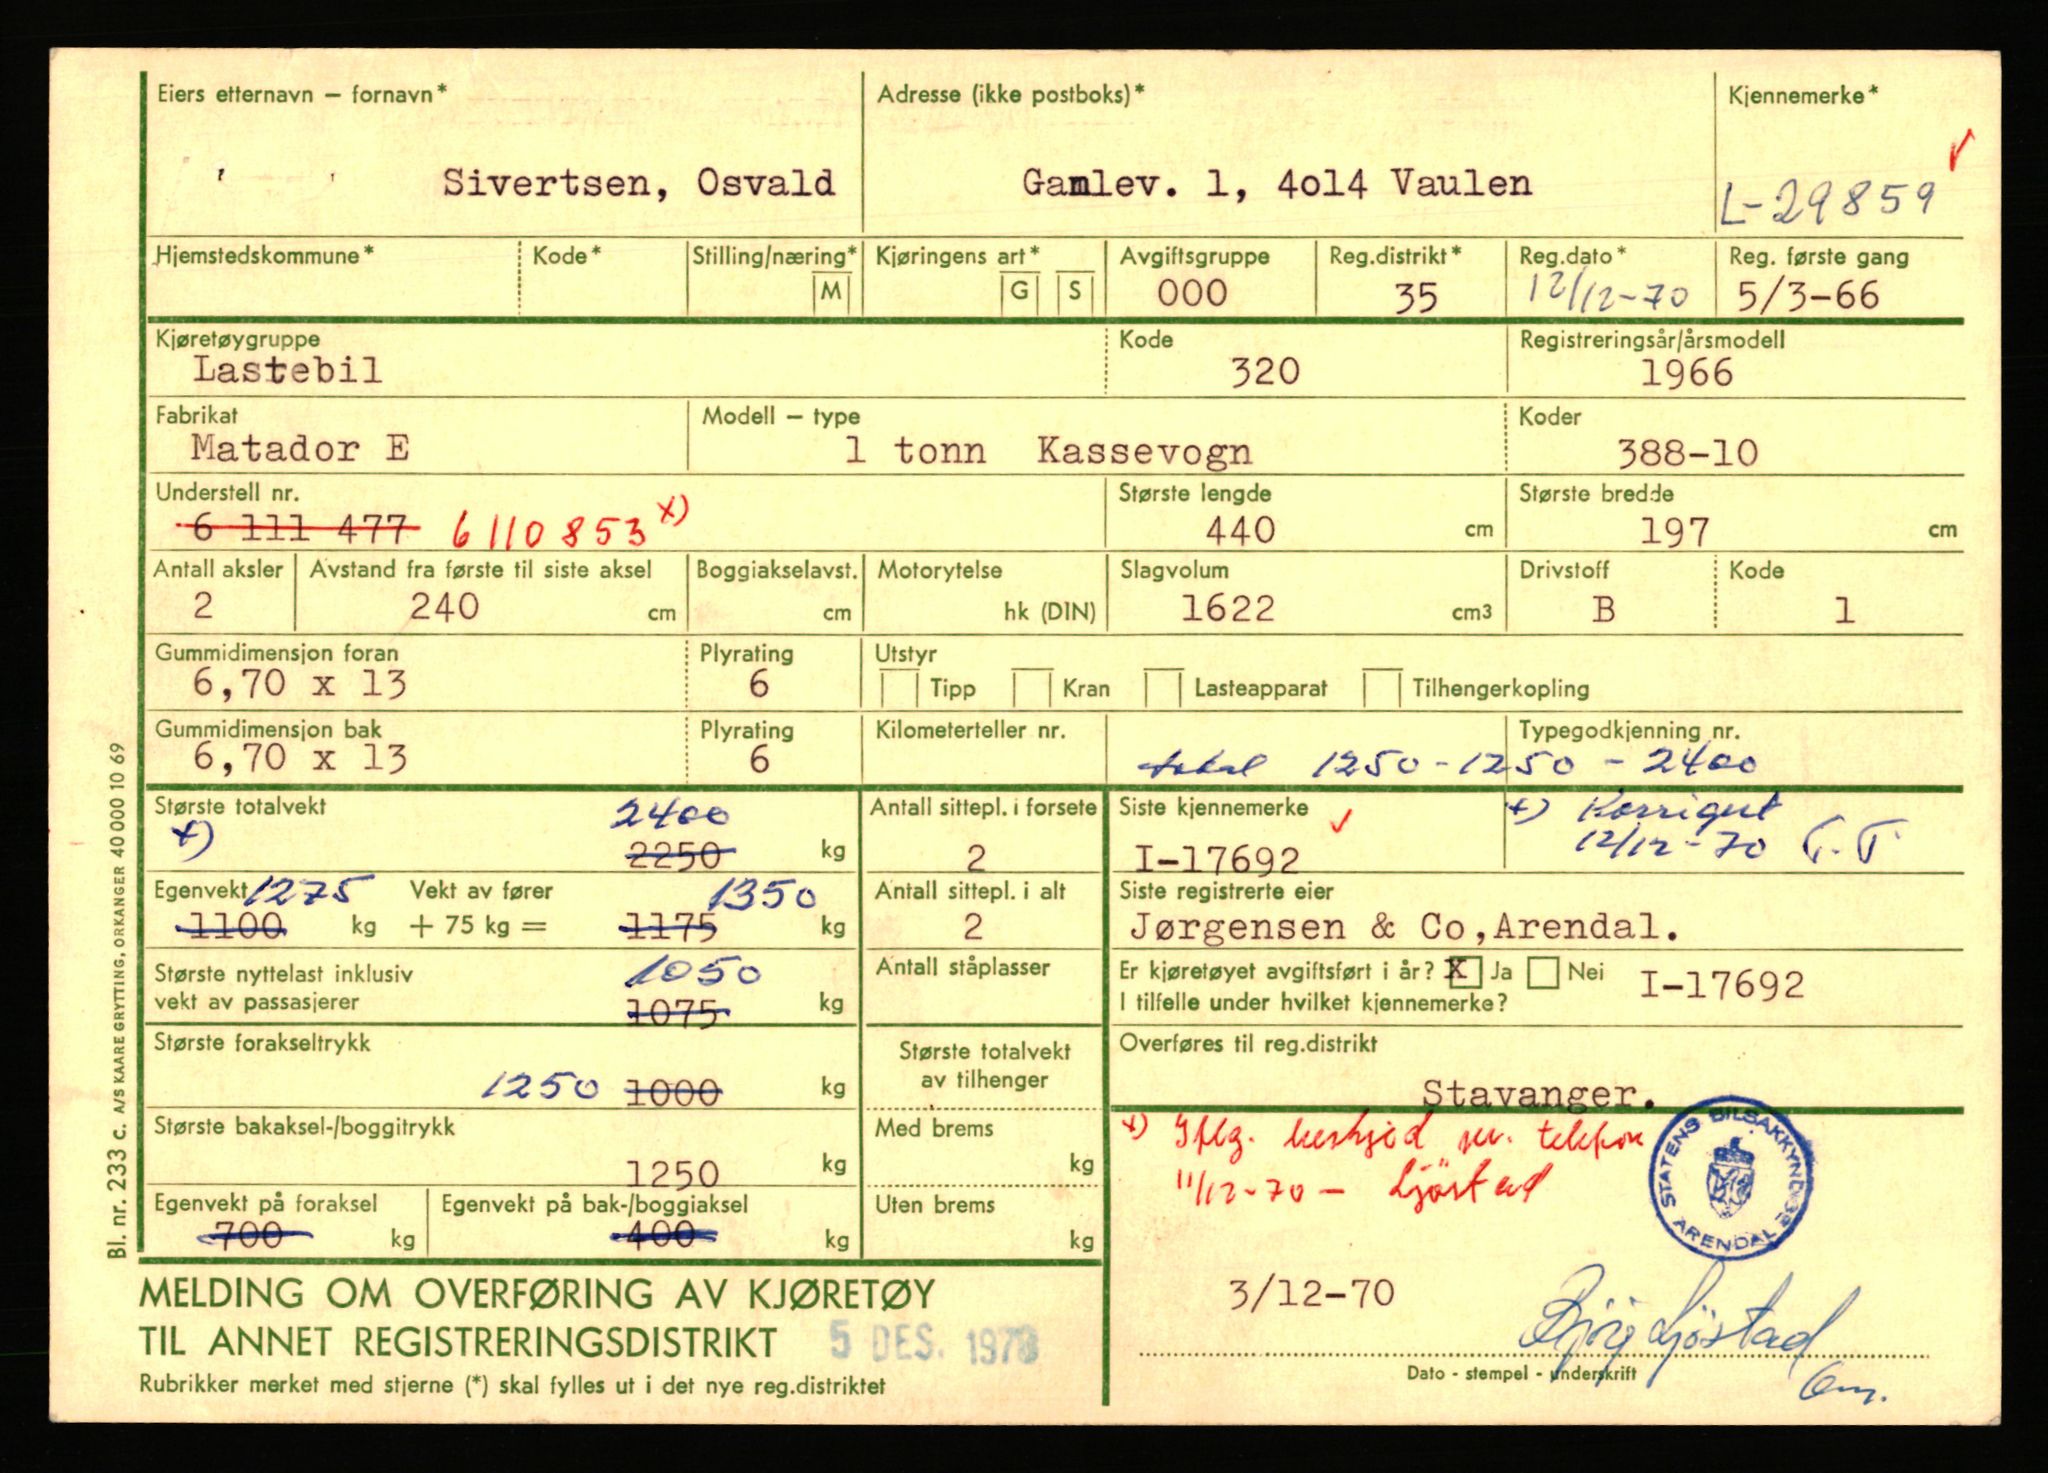 Eiers etternavn – fornavn* Adresse (ikke postboks)* Kjennemerke*
Sivertsen, Osvald Gamlev. 1, 4o14 Vaulen L-29859
Hjemstedskommune* Kode* Stilling/næring* Kjøringens art* Avgiftsgruppe Reg.distrikt* Reg.dato* Reg. første gang
M G S 000 35 12/12-70 5/3-66
Kjøretøygruppe Kode Registreringsår/årsmodell
Lastebil 320 1966
Fabrikat Modell – type Koder
Matador E 1 tonn Kassevogn 388-10
Understell nr. Største lengde Største bredde
6 111 477 6110853 x) 440 cm 197 cm
Antall aksler Avstand fra første til siste aksel Boggiakselavst. Motorytelse Slagvolum Drivstoff Kode
2 240 cm cm hk (DIN) 1622 cm3 B 1
Gummidimensjon foran Plyrating Utstyr
6,70 x 13 6 Tipp Kran Lasteapparat Tilhengerkopling
Gummidimensjon bak Plyrating Kilometerteller nr. Typegodkjenning nr.
6,70 x 13 6 total 1250-1250-2400
Største totalvekt 2400 Antall sittepl. i forsete Siste kjennemerke x) Korrigert
x) 2250 kg 2 I-17692 12/12-70 T.T
Egenvekt 1275 Vekt av fører 1350 Antall sittepl. i alt Siste registrerte eier
1100 kg + 75 kg = 1175 kg 2 Jørgensen & Co,Arendal.
Største nyttelast inklusiv 1050 Antall ståplasser Er kjøretøyet avgiftsført i år? X Ja Nei I-17692
vekt av passasjerer 1075 kg I tilfelle under hvilket kjennemerke?
Største forakseltrykk Største totalvekt Overføres til reg.distrikt
1250 1000 kg av tilhenger Stavanger.
Største bakaksel-/boggitrykk Med brems x) Iflg. beskjed pr. telefon
1250 kg kg 11/12-70 - Ljøstad
Egenvekt på foraksel Egenvekt på bak-/boggiaksel Uten brems
700 kg 400 kg kg
STATENS BILSAKKYNDIGE ARENDAL
MELDING OM OVERFØRING AV KJØRETØY 3/12-70
TIL ANNET REGISTRERINGSDISTRIKT 5 DES. 1970 Ljøstad
Rubrikker merket med stjerne (*) skal fylles ut i det nye reg.distriktet Dato - stempel - underskrift
Bl. nr. 233 C. A/S KAARE GRYTTING, ORKANGER 40 000 10 69